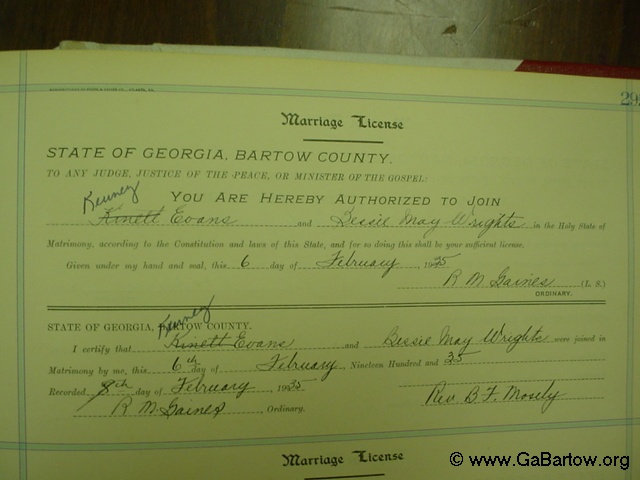 29
Marriage License
STATE OF GEORGIA, BARTOW COUNTY.
TO ANY JUDGE, JUSTICE OF THE PEACE, OR MINISTER OF THE GOSPEL:
Kenney
YOU ARE HEREBY AUTHORIZED TO JOIN
Kinett Evans and Bessie May Wrights in the Holy State of
Matrimony, according to the Constitution and laws of this State, and for so doing this shall be your sufficient license.
Given under my hand and seal, this 6 day of February, 1935
R M Gaines (L. S.)
ORDINARY.
Kenney
STATE OF GEORGIA, BARTOW COUNTY.
I certify that Kinett Evans and Bessie May Wrights were joined in
Matrimony by me, this 6th day of February, Nineteen Hundred and 35
Recorded 8th day of February, 1935
Rev B. F. Mosely
R M. Gaines, Ordinary.
Marriage License
© www.GaBartow.org